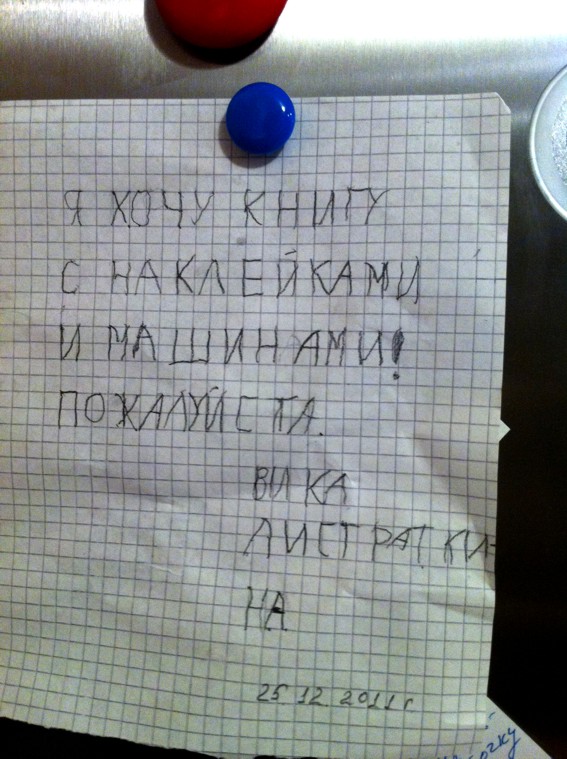 Я ХОЧУ КНИГУ
С НАКЛЕЙКАМИ
И МАШИНАМИ!
ПОЖАЛУЙСТА.
ВИКА
ЛИСТРАТКИ-
НА
25 12 2011 г